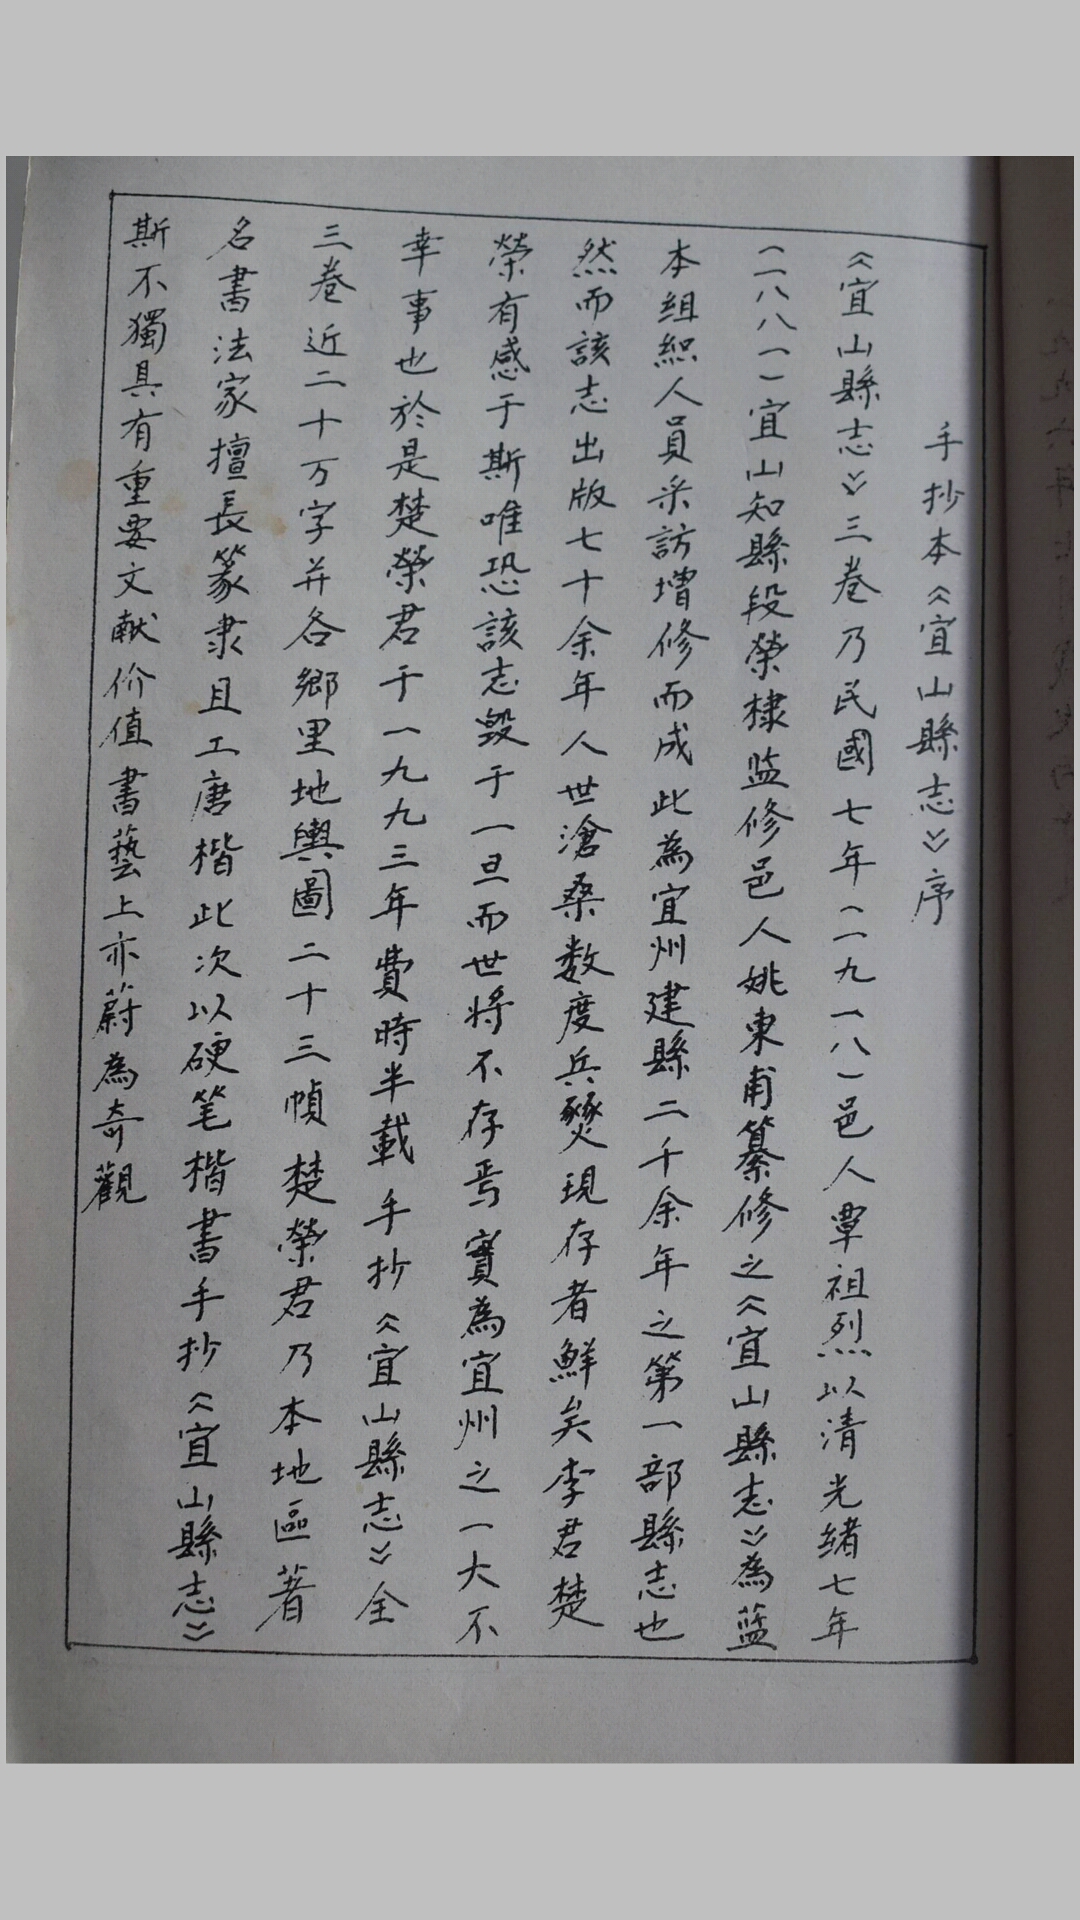 手抄本《宜山縣志》序
《宜山縣志》三卷乃民國七年(一九一八)邑人覃祖烈以清光緒七年
(一八八一)宜山知縣段榮棣监修邑人姚東甫纂修之《宜山縣志》為蓝
本組織人員采訪增修而成此為宜州建縣二千余年之第一部縣志也
然而該志出版七十余年人世滄桑数度兵燹現存者鮮矣李君楚
榮有感于斯唯恐該志毁于一旦而世将不存焉實為宜州之一大不
幸事也於是楚榮君于一九九三年費時半載手抄《宜山縣志》全
三卷近二十万字并各鄉里地輿圖二十三幀楚榮君乃本地區著
名書法家擅長篆隶且工唐楷此次以硬笔楷書手抄《宜山縣志》
斯不獨具有重要文献价值書藝上亦蔚為奇觀